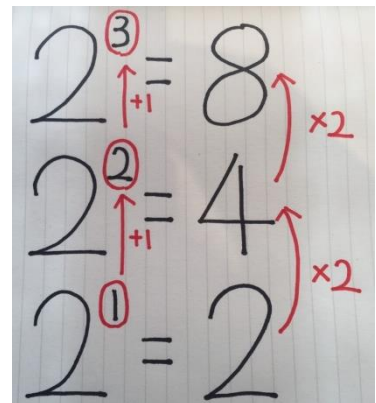 2³ = 8
+1 ×2
2² = 4
+1 ×2
2¹ = 2